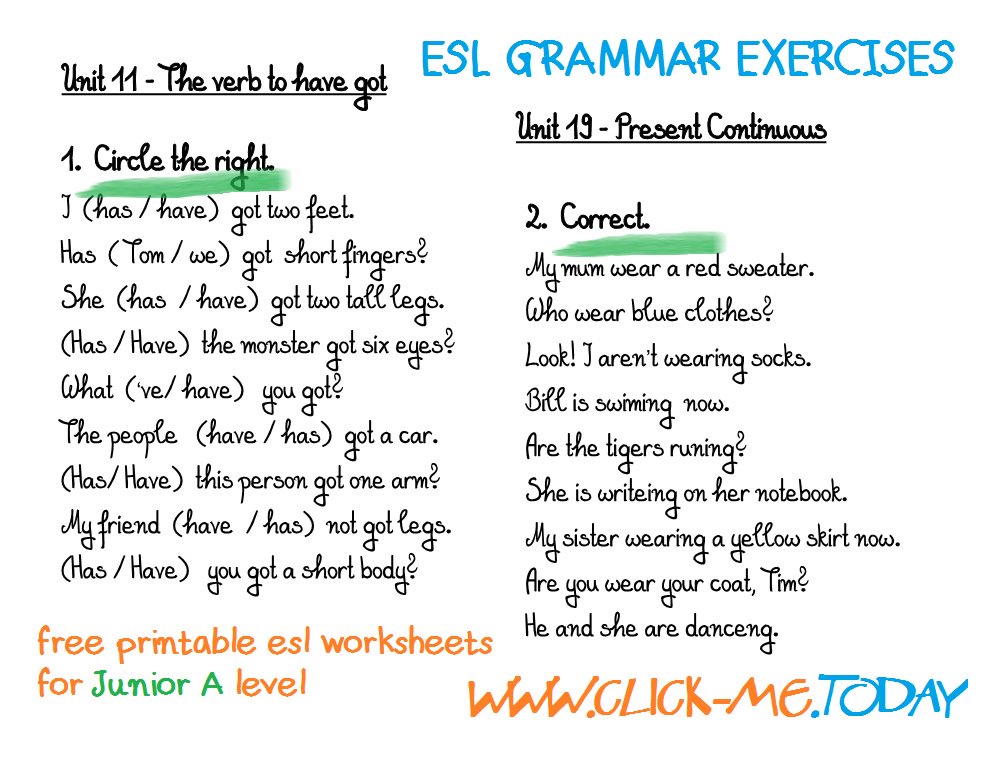 ESL GRAMMAR EXERCISES
Unit 11 - The verb to have got
1. Circle the right.
I (has / have) got two feet.
Has (Tom / we) got short fingers?
She (has / have) got two tall legs.
(Has / Have) the monster got six eyes?
What ('ve/ have) you got?
The people (have / has) got a car.
(Has/ Have) this person got one arm?
My friend (have / has) not got legs.
(Has / Have) you got a short body?
Unit 19 - Present Continuous
2. Correct.
My mum wear a red sweater.
Who wear blue clothes?
Look! I aren't wearing socks.
Bill is swiming now.
Are the tigers runing?
She is writeing on her notebook.
My sister wearing a yellow skirt now.
Are you wear your coat, Tim?
He and she are danceng.
free printable esl worksheets
for Junior A level
WWW.CLICK-ME.TODAY